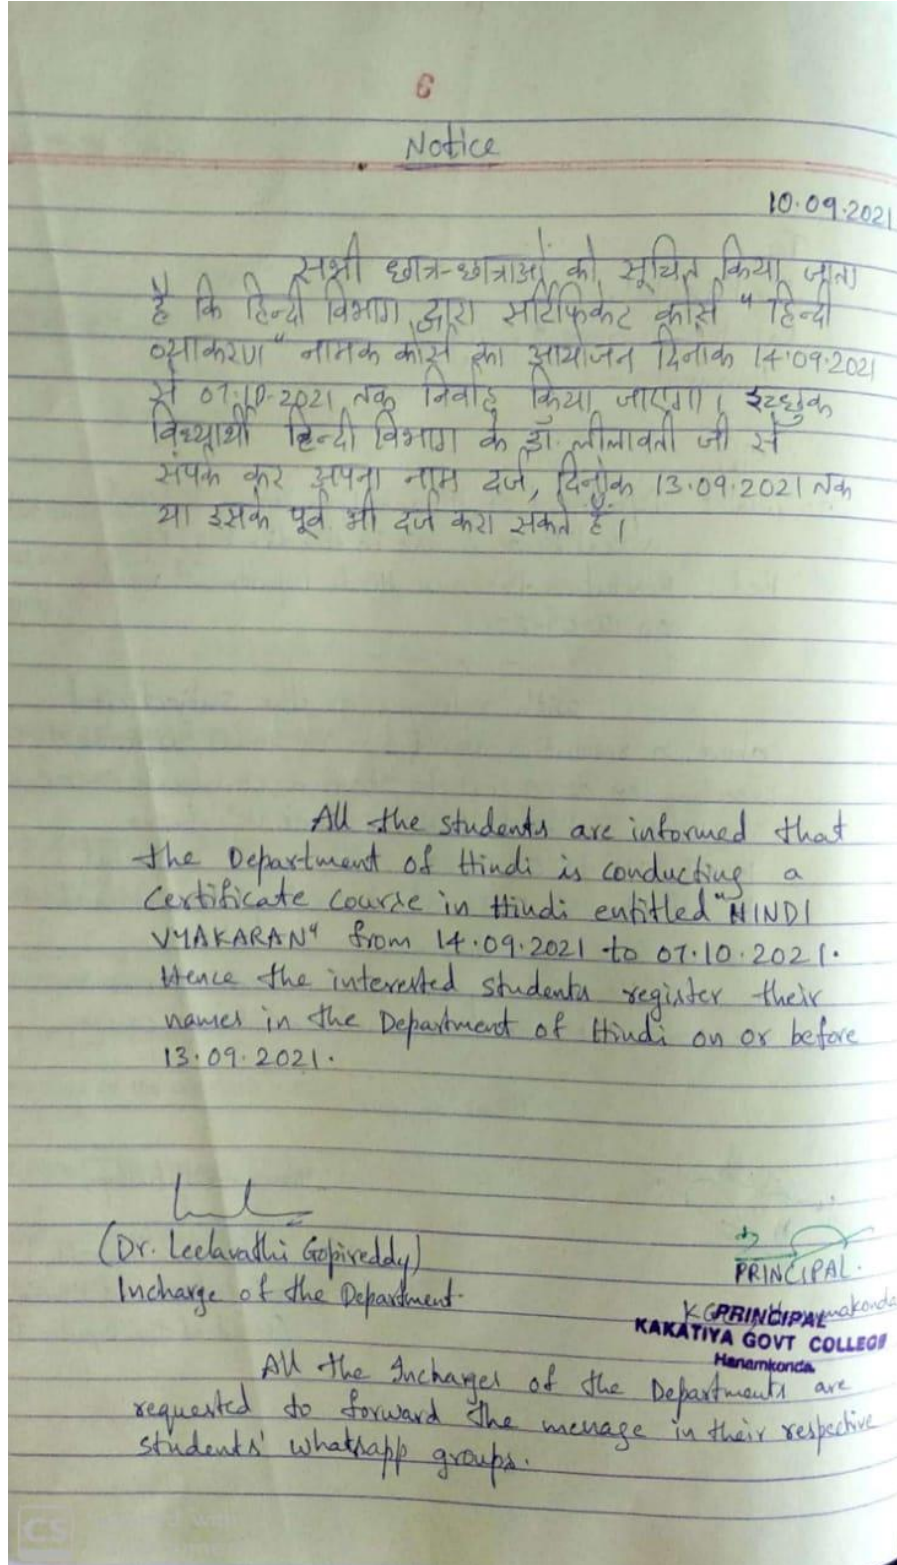 6
Notice
10.09.2021
सभी छात्र-छात्राओं को सूचित किया जाता
है कि हिन्दी विभाग द्वारा सर्टिफिकेट कोर्स "हिन्दी
व्याकरण" नामक कोर्स का आयोजन दिनांक 14.09.2021
से 07.10.2021 तक निर्वाह किया जाएगा। इच्छुक
विध्यार्थी हिन्दी विभाग के डॉ. लीलावती जी से
संपर्क कर अपना नाम दर्ज, दिनांक 13.09.2021 तक
या इसके पूर्व भी दर्ज करा सकते हैं।
All the students are informed that
the Department of Hindi is conducting a
Certificate Course in Hindi entitled "HINDI
VYAKARAN" from 14.09.2021 to 07.10.2021.
Hence the interested students register their
names in the Department of Hindi on or before
13.09.2021.
(Dr. Leelavathi Gopireddy)
Incharge of the Department.
PRINCIPAL.
PRINCIPAL
KAKATIYA GOVT COLLEGE
Hanamkonda
All the Incharges of the Departments are
requested to forward the message in their respective
students' whatsapp groups.
CS